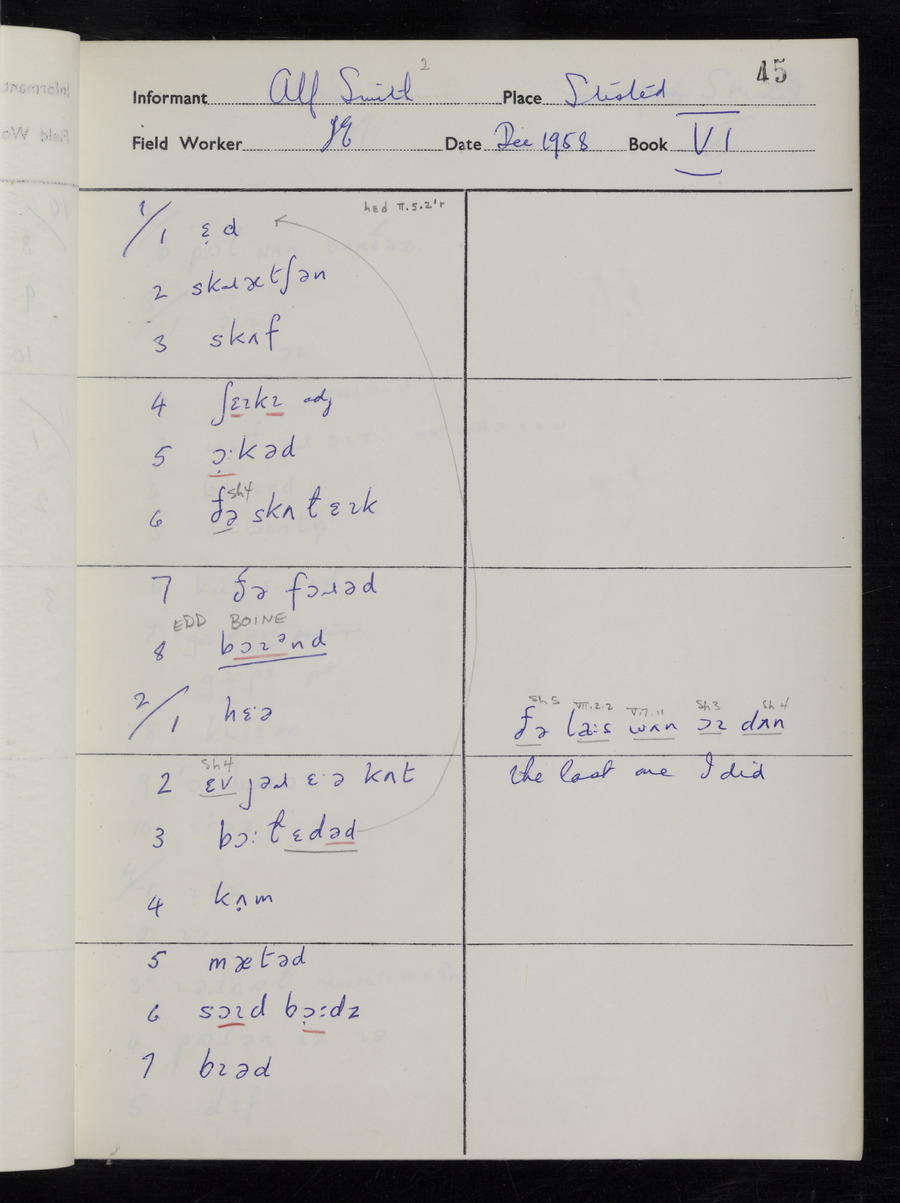 45
2
Informant Alf Smith Place Stisted
Field Worker JE Date Dec 1958 Book VI
hɛd II.5.2'r
1/1 ɛ̣d
2 skɹætʃən
3 skʌf
4 ʃɛɪkɪ adj
5 ɔ̣:kəd
sh4
6 ðə skʌt ɛɪk
7 ðə fɔɹəd
EDD BOINE
8 bɔɪᵊnd
2/1 hɛ·ə
sh5 VIII.2.2 V.7.11 sh3 sh4
ðə la:s wʌn ɔɪ dʌn
sh4
2 ɛv jəɹ ɛ·ə kʌt
the last one I did
3 bɔ:t ɛdəd
4 kʌ̣m
5 mætəd
6 sɔɪd bɔ̣:dz
7 bɪəd